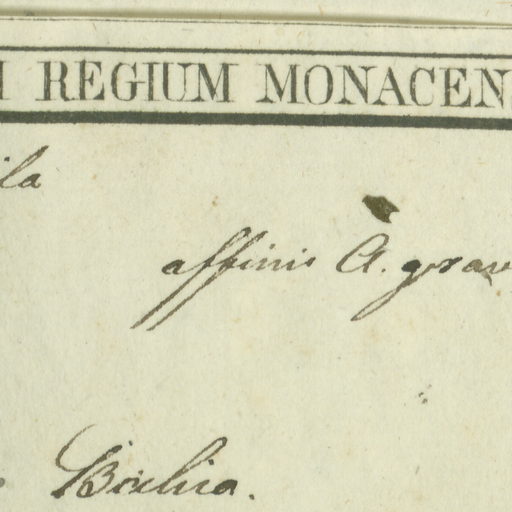 REGIUM MONACEN
ila
affinis A. grav